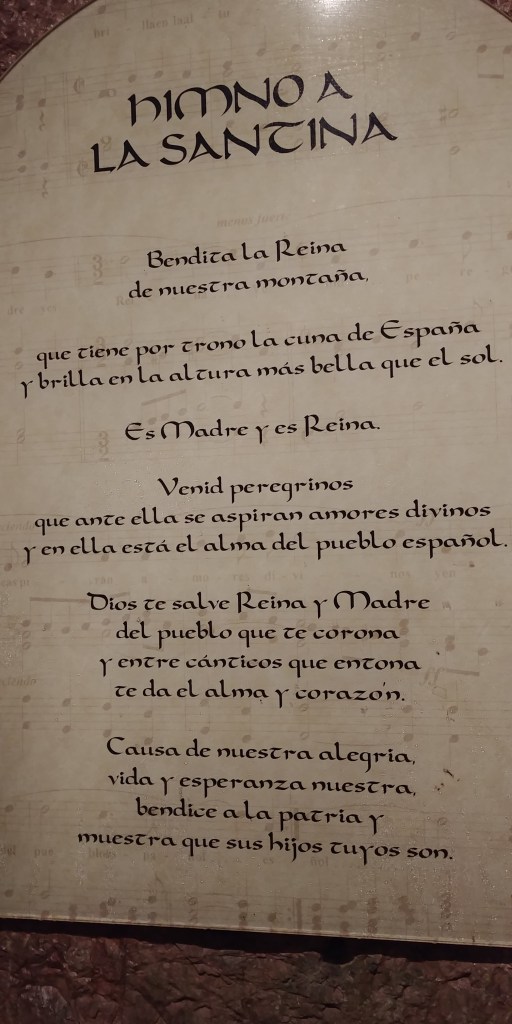 HIMNO A
LA SANTINA
Bendita la Reina
de nuestra montaña,
que tiene por trono la cuna de España
y brilla en la altura más bella que el sol.
Es Madre y es Reina.
Venid peregrinos
que ante ella se aspiran amores divinos
y en ella está el alma del pueblo español.
Dios te salve Reina y Madre
del pueblo que te corona
y entre cánticos que entona
te da el alma y corazón.
Causa de nuestra alegria,
vida y esperanza nuestra,
bendice a la patria y
muestra que sus hijos tuyos son.